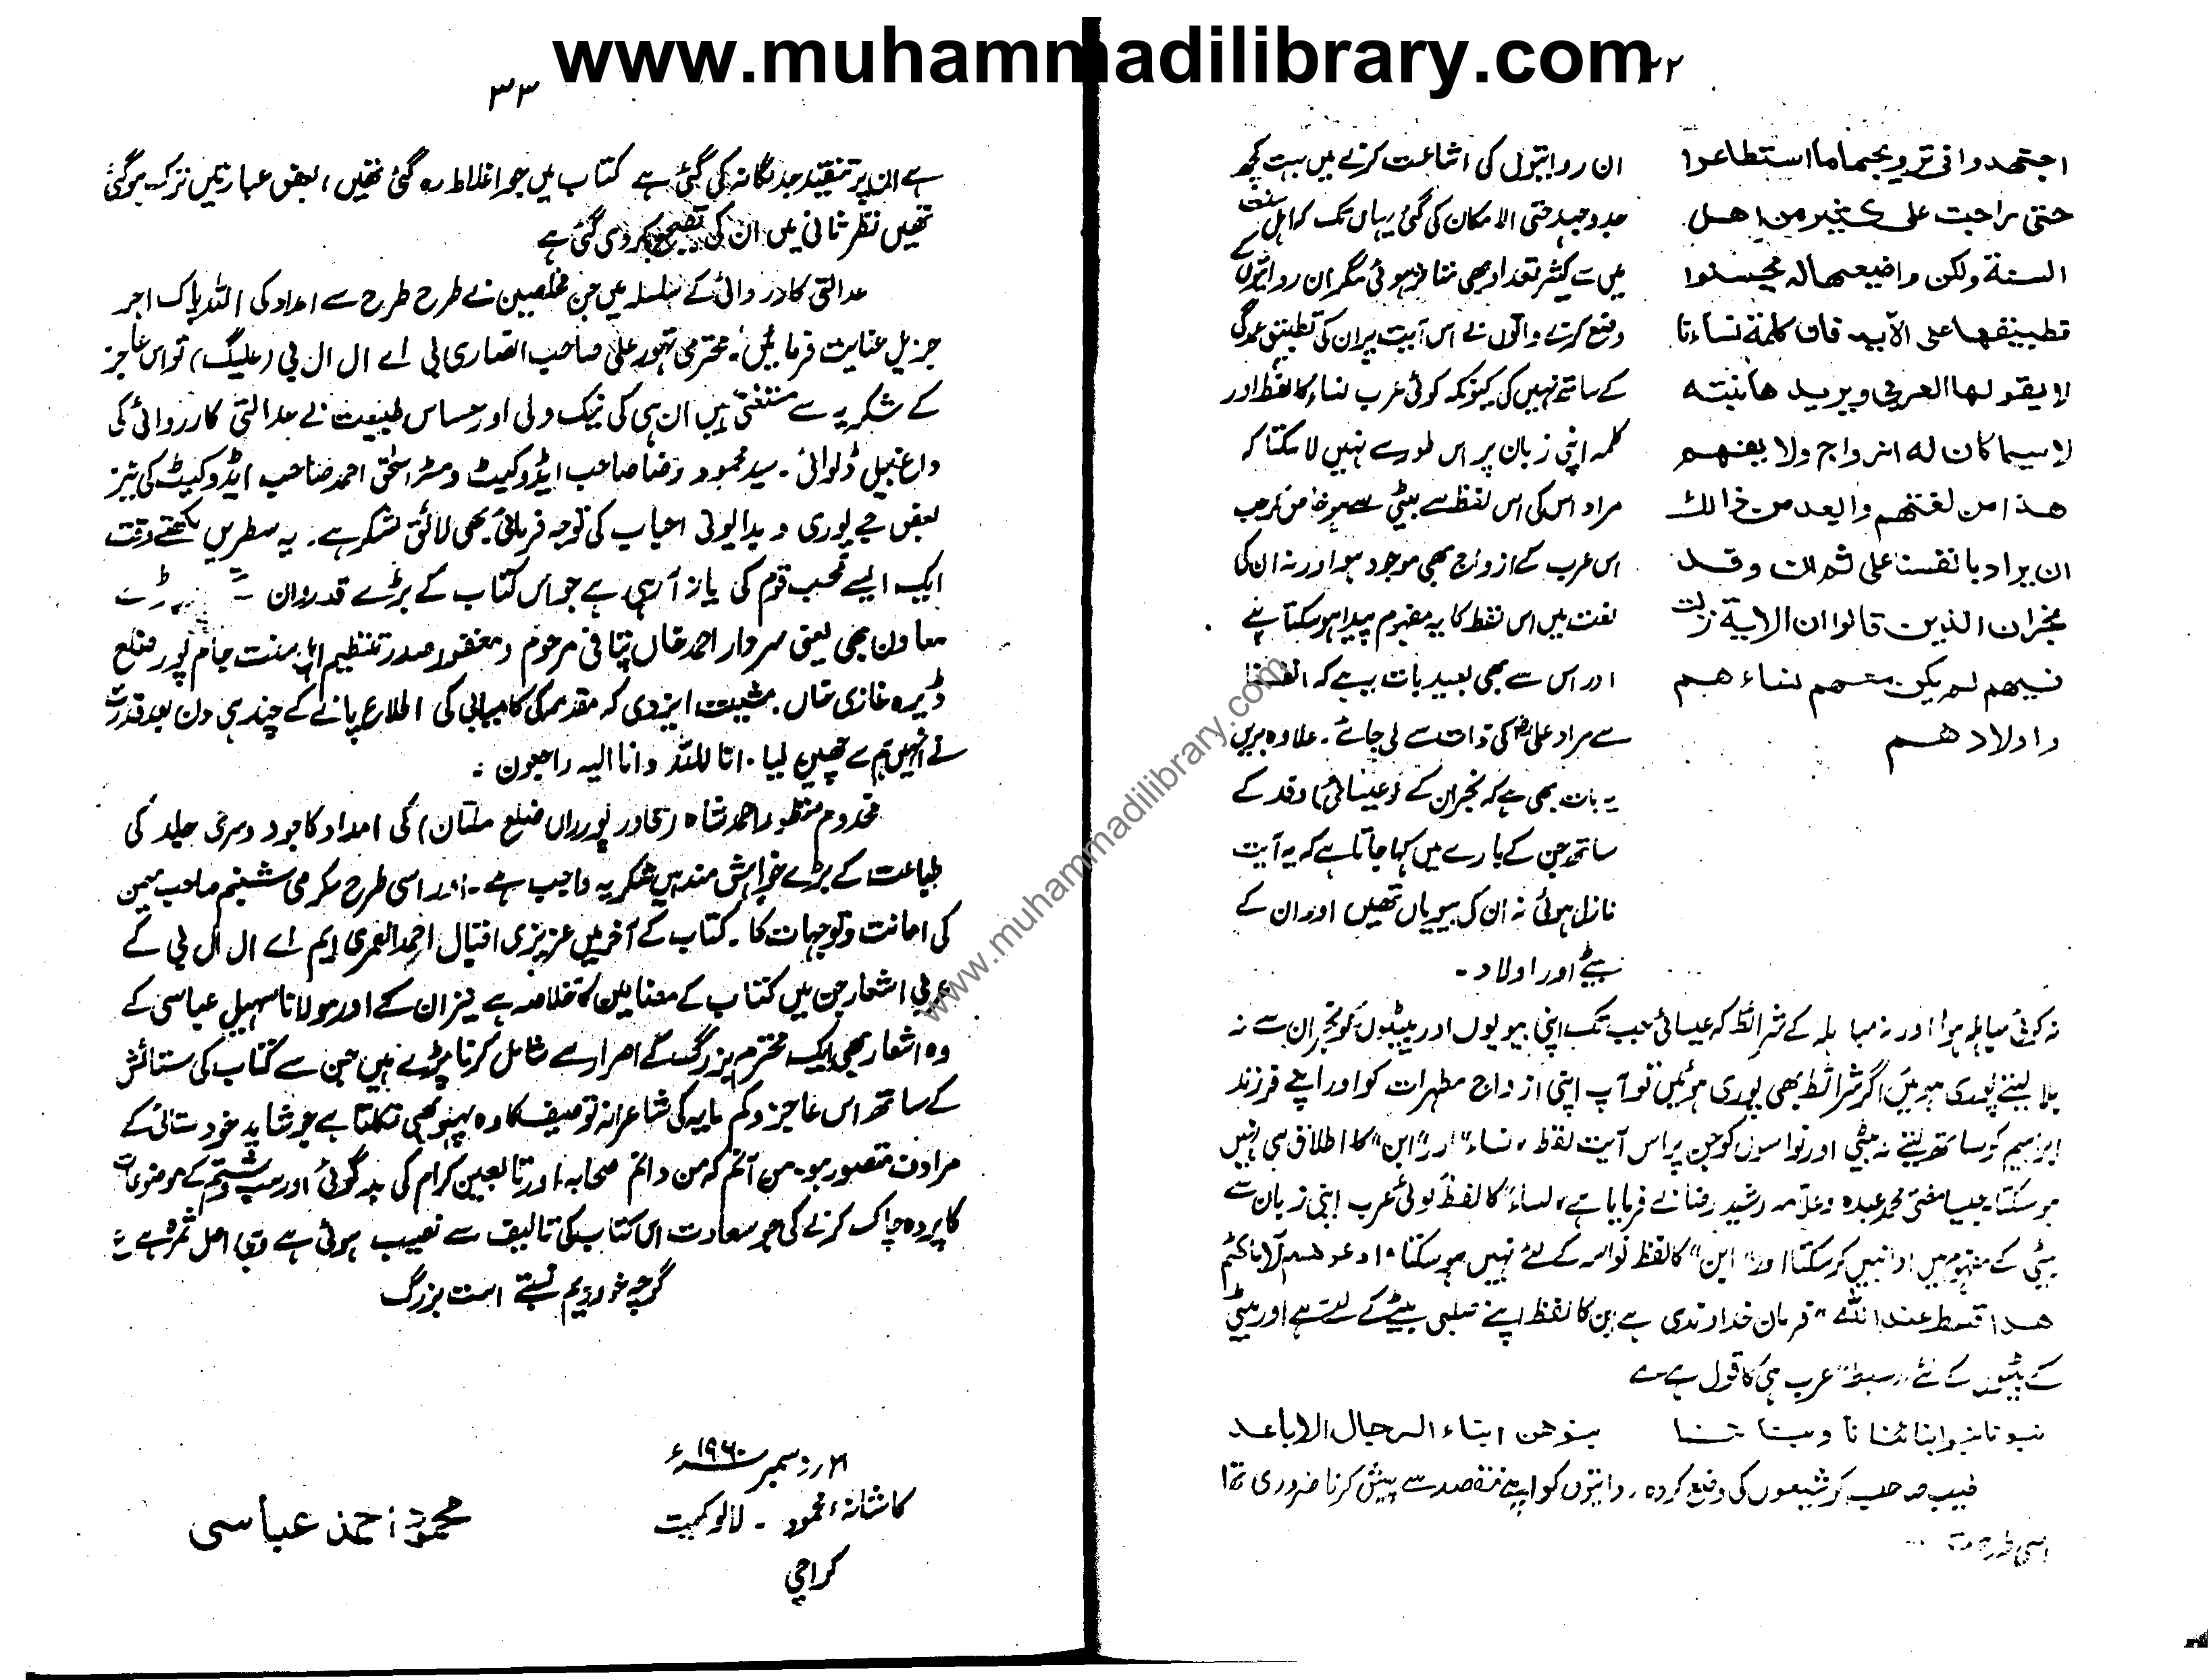 www.muhammadilibrary.com
۳۲
اجتهدوا فی ترویجها ما استطاعوا
حتی راجت علی کثیر من اهل
السنة ولکن واضیعها لم یحسنوا
تطبیقها علی الآیه فان کلمة نساءنا
لا یقولها العربی ویرید ها بنته
لا سیما کان له ازواج ولا یفهم
هذا من لغتهم وابعد من ذالك
ان یراد بانفسنا علی ثم ان وفد
نجران الذین قالوا ان الایة نزلت
فیهم لم یکن معهم نساءهم
واولادهم
ان روایتوں کی اشاعت کرنے میں بہت کچھ
جدوجہد حتی الامکان کی گئی یہاں تک کہ اہل سنت
میں سے کثیر تعداد بھی متاثر ہوئی مگر ان روایتوں کے
وضع کرنے والوں نے اس آیت پر ان کی تطبیق عمدگی
کے ساتھ نہیں کی کیونکہ کوئی عرب نساء کا لفظ اور
کلمہ اپنی زبان پر اس طور سے نہیں لا سکتا کہ
مراد اس کی اس لفظ سے بیٹی سے ہو خاص کر جب
اس عرب کے ازواج بھی موجود ہو اور نہ ان کی
لغت میں اس لفظ کا یہ مفہوم پیدا ہو سکتا ہے
اور اس سے بھی بعید بات یہ ہے کہ انفسنا
سے مراد علیؓ کی ذات سے لی جائے۔ علاوہ بریں
یہ بات بھی ہے کہ نجران کے (عیسائی) وفد کے
ساتھ جن کے بارے میں کہا جاتا ہے کہ یہ آیت
نازل ہوئی نہ ان کی بیویاں تھیں اور ان کے
بیٹے اور اولاد۔
نہ کوئی مباہلہ ہوا اور نہ مباہلہ کے شرائط کہ عیسائی جب تک اپنی بیویوں اور بیٹیوں کو نجران سے نہ
بلا لیتے پوری ہوتیں اگر شرائط بھی پوری ہوتیں تو آپ اپنی ازواج مطہرات کو اور اپنے فرزند
ابراہیم کو ساتھ لیتے نہ بیٹی اور نواسوں کو جن پر اس آیت لفظ "نساء" اور "ابن" کا اطلاق ہی نہیں
ہو سکتا جیسا مفتی محمد عبدہ و علامہ رشید رضا نے فرمایا ہے "نساء" کا لفظ کوئی عرب اپنی زبان سے
بیٹی کے مفہوم میں ادا نہیں کر سکتا اور "ابن" کا لفظ نواسہ کے لئے نہیں ہو سکتا "ادعوهم لآبائهم
هو اقسط عند اللہ" فرمان خداوندی ہے ابن کا لفظ اپنے صلبی بیٹے کے لئے ہے اور بیٹی
کے بیٹوں کے لئے "سبط" عرب ہی کا قول ہے ؎
بنونا بنو ابنائنا وبناتنا بنوهن ابناء الرجال الاباعد
طبیب صاحب کو شیعوں کی وضع کردہ روایتوں کو اپنے مقصد سے پیش کرنا ضروری تھا
اسی طرح
۳۳
ہے ان پر تنقید جداگانہ کی گئی ہے کتاب میں جو اغلاط رہ گئی تھیں، بعض عبارتیں ترک ہو گئی
تھیں نظر ثانی میں ان کی تصحیح کر دی گئی ہے
عدالتی کارروائی کے سلسلہ میں جن مخلصین نے طرح طرح سے امداد کی اللہ پاک اجر
جزیل عنایت فرمائیں۔ محترمی تہور علی صاحب انصاری بی اے ال ال بی (علیگ) تو اس عاجز
کے شکریہ سے مستغنی ہیں ان ہی کی نیک دلی اور حساس طبیعت نے عدالتی کارروائی کی
داغ بیل ڈلوائی۔ سید محمود رضا صاحب ایڈوکیٹ و مسٹر اسحٰق احمد صاحب ایڈوکیٹ کی نیز
بعض جے پوری و بدایونی احباب کی توجہ فرمائی بھی لائق تشکر ہے۔ یہ سطریں لکھتے وقت
ایک ایسے محب قوم کی یاد آ رہی ہے جو اس کتاب کے بڑے قدردان
معاون بھی یعنی سردار احمد خاں پتافی مرحوم و مغفور صدر تنظیم اہل سنت جام پور ضلع
ڈیرہ غازی خاں۔ مشیت ایزدی کہ مقدمہ کی کامیابی کی اطلاع پانے کے چند ہی دن بعد قدرت
نے انہیں ہم سے چھین لیا۔ انا للہ وانا الیہ راجعون ۔
مخدوم منظور احمد شاہ (قادر پور راں ضلع ملتان) کی امداد کا جو دوسری جلد کی
طباعت کے بڑے خواہش مند ہیں شکریہ واجب ہے۔ اور اسی طرح مکرمی شبنم صاحب میمن
کی اعانت و توجہات کا۔ کتاب کے آخر میں عزیزی اقبال احمد العمری ایم اے ال ال بی کے
عربی اشعار جن میں کتاب کے مضامین کا خلاصہ ہے نیز ان کے اور مولانا سہیل عباسی کے
وہ اشعار بھی ایک محترم بزرگ کے اصرار سے شامل کرنا پڑے ہیں جن سے کتاب کی ستائش
کے ساتھ اس عاجز و کم مایہ کی شاعرانہ توصیف کا وہ پہلو بھی نکلتا ہے جو شاید خود ستائی کے
مرادف متصور ہو۔ من آنم کہ من دانم صحابہ اور تابعین کرام کی بدگوئی اور سب و شتم کے موضوعات
کا پردہ چاک کرنے کی جو سعادت اس کتاب کی تالیف سے نصیب ہوئی ہے وہی اصل ثمرہ ہے ؎
گرچہ خوردیم نسبتے است بزرگ
۲۱ دسمبر ۱۹۶۰ء
کاشانۂ محمود ۔ لالوکھیت
کراچی
محمود احمد عباسی
www.muhammadilibrary.com